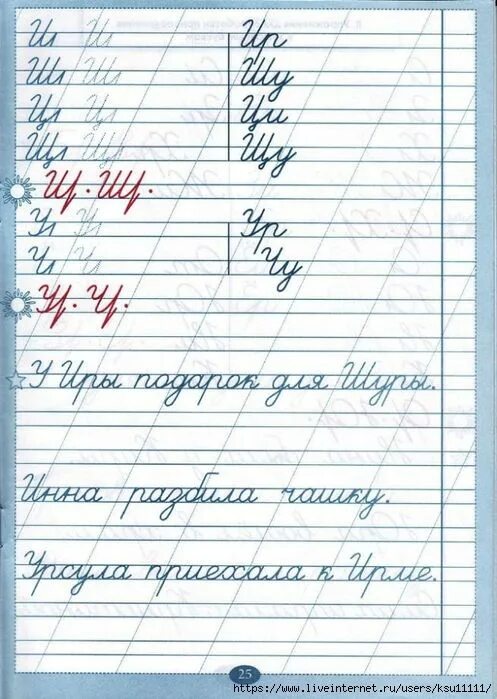 И И Ир
Ш Ш Шу
Ц Ц Ци
Щ Щ Щу
У У Ур
Ч Ч Чу
У Иры подарок для Шуры.
Инна разбила чашку.
Урсула приехала к Ирме.
25
https://www.liveinternet.ru/users/ksu11111/